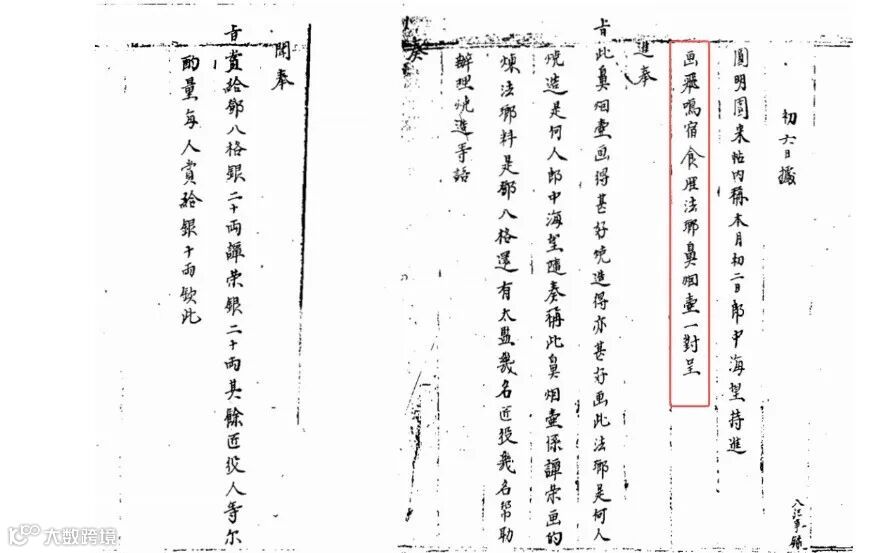 初六日據
圓明園来帖内稱本月初二日郎中海望持進
画飛鳴宿食雁法瑯鼻烟壷一對呈
進奉
旨此鼻烟壷画得甚好燒造得亦甚好画此法瑯是何人
燒造是何人郎中海望隨奏稱此鼻烟壷係譚荣画的
煉法瑯料是鄧八格還有太监幾名匠役幾名幇助
辦理燒造等語
奏
聞奉
旨賞給鄧八格銀二十兩譚荣銀二十兩其餘匠役人等尔
酌量每人賞給銀十兩欽此
大数跨境